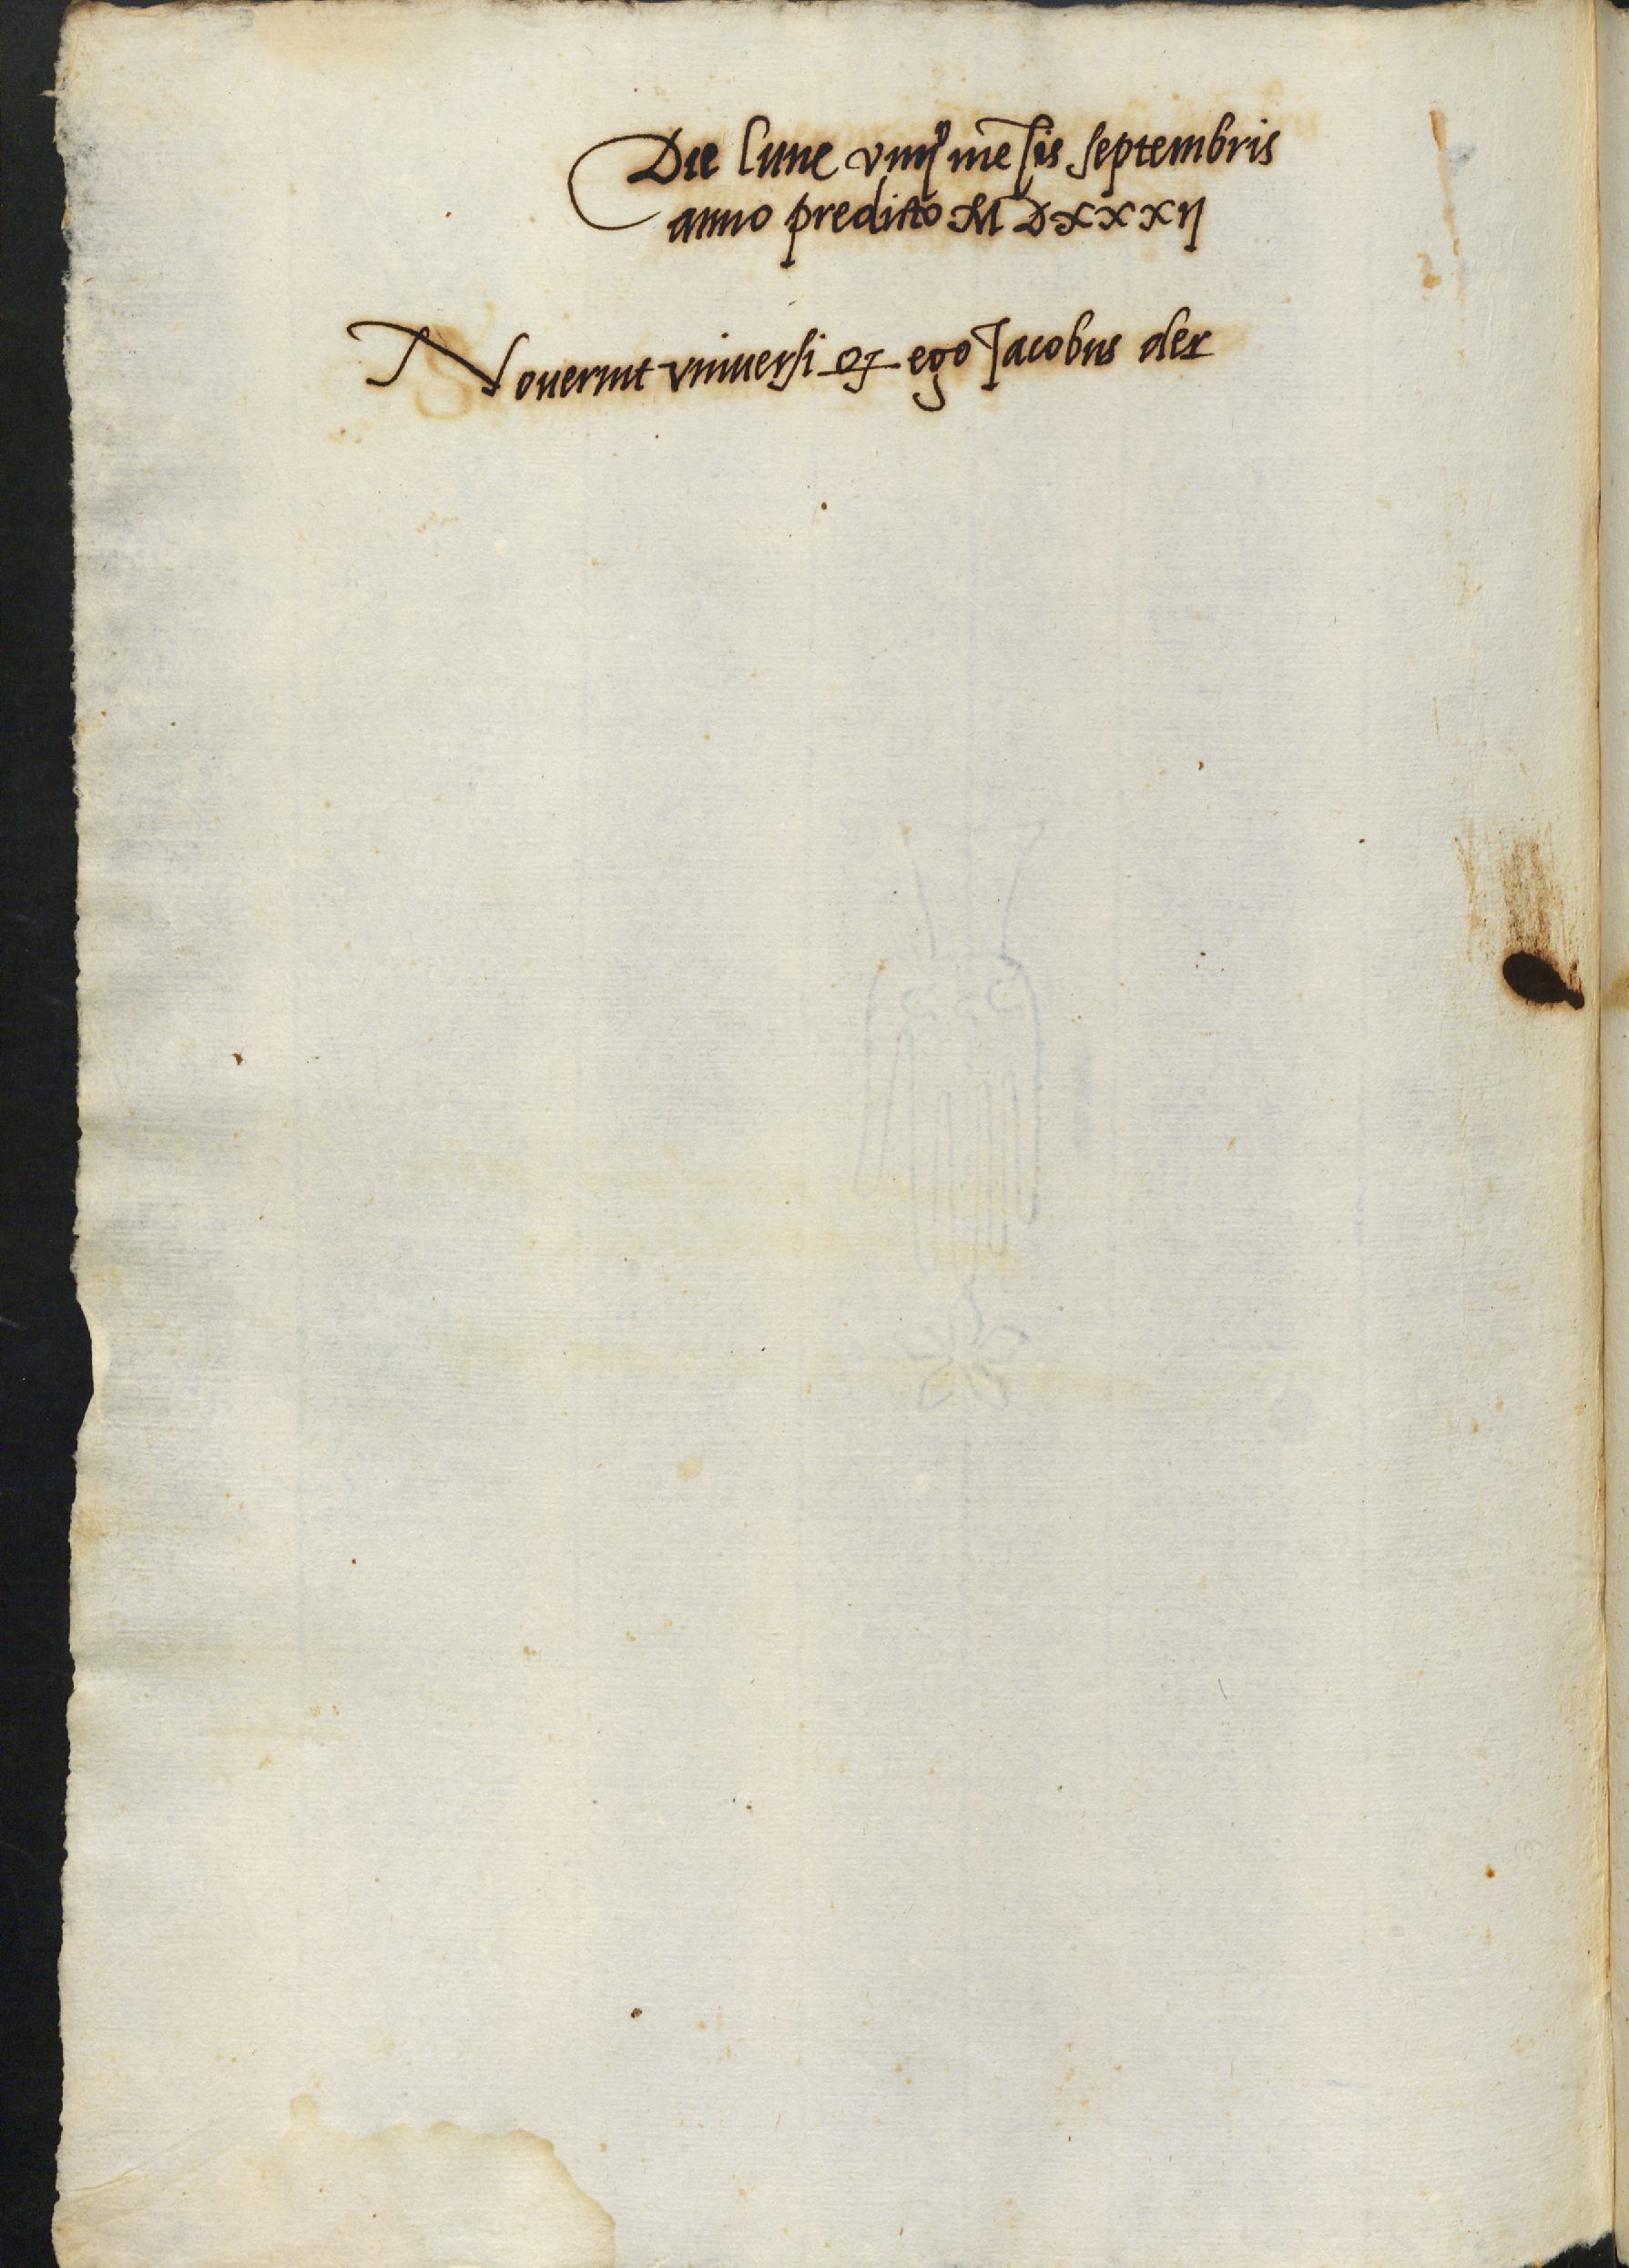 Die lune viiij mēsis septembris
anno predicto M D x x x ij
Nouerint vniuersi ꝙ ego Jacobus der